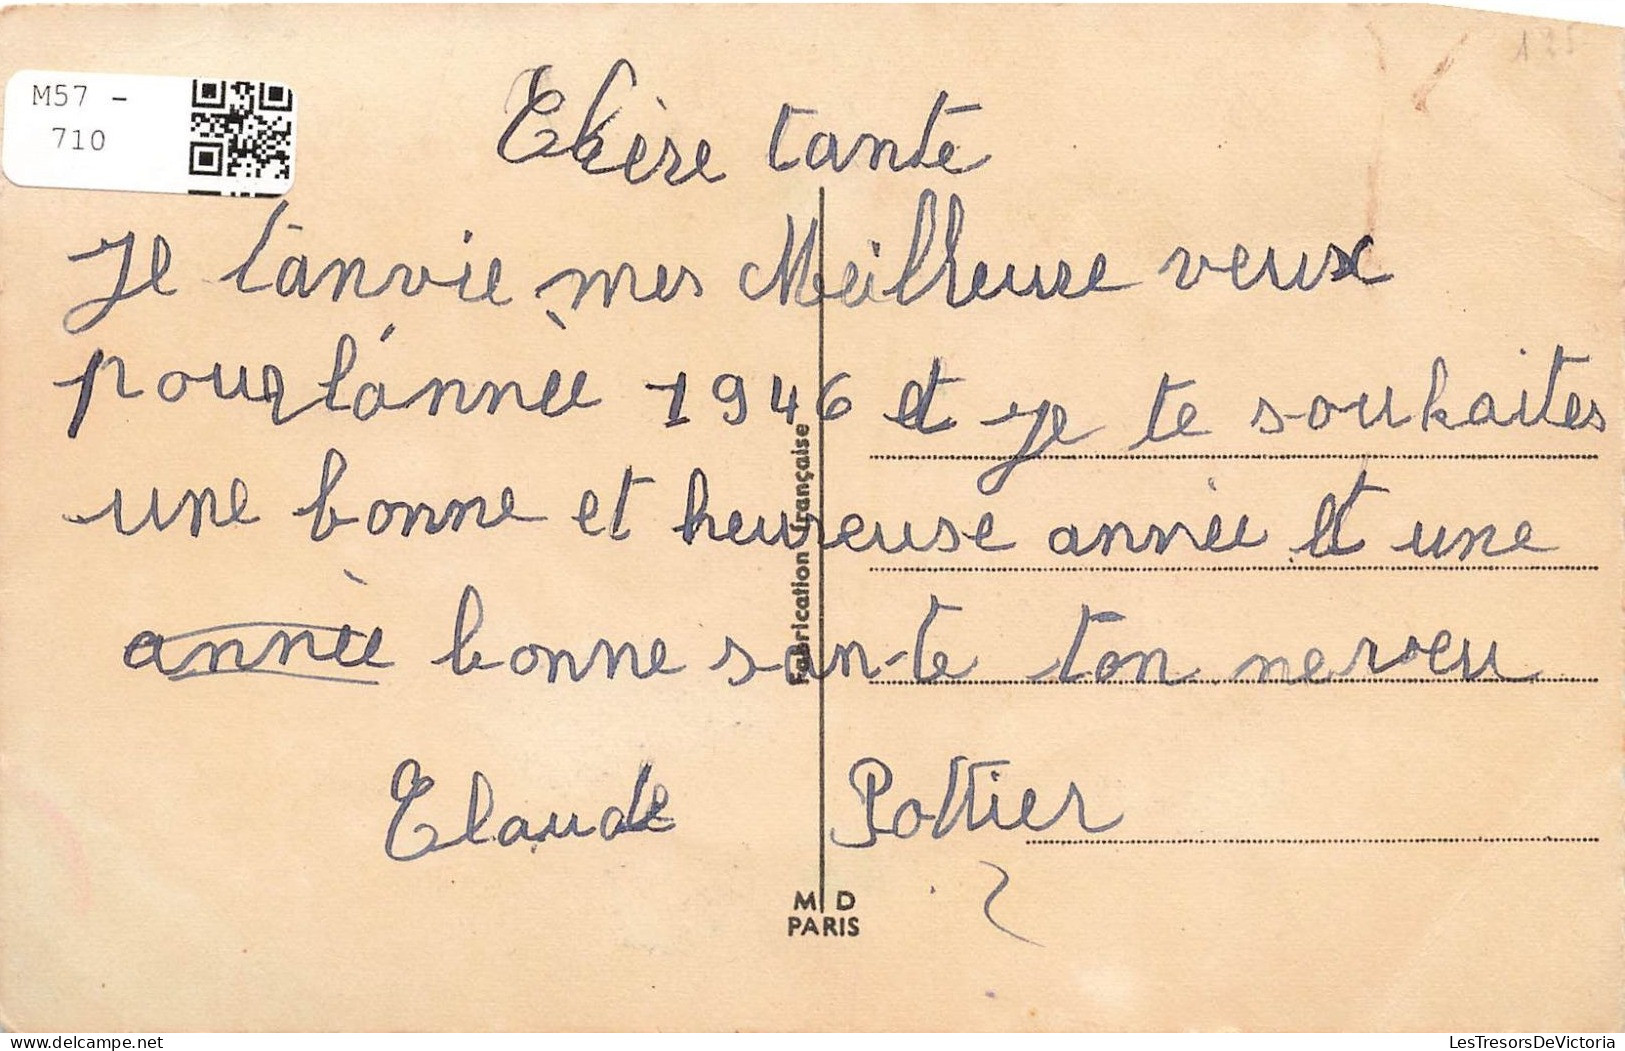 M57 -
710
Chère tante
Je t'anvie mes Meilheure veux
pour l'année 1946 et je te souhaites
une bonne et heureuse année et une
année bonne san-te ton neveu
Claude Pottier
Fabrication française
M D
PARIS
delcampe.net
LesTresorsDeVictoria